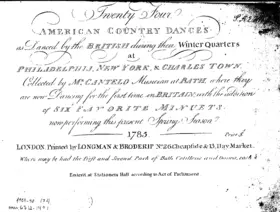 Twenty Four
AMERICAN COUNTRY DANCES
as Danced by the BRITISH during their Winter Quarters
at
PHILADELPHIA, NEW YORK, & CHARLES TOWN.
Collected by Mr. CANTELO Musician at BATH, where they
are now Dancing for the first time in BRITAIN, with the addition
of SIX FAVORITE MINUETS,
now performing this present Spring Season
1785.
LONDON Printed by LONGMAN & BRODERIP No. 26 Cheapside & 13, Hay Market.
Where may be had the First and Second Part of Bath Cotillons and
Entered at Stationers Hall according to Act of Parliament